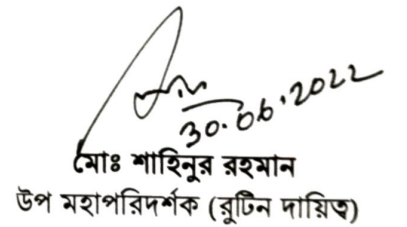 30.06.2022
মোঃ শাহিনুর রহমান
উপ মহাপরিদর্শক (রুটিন দায়িত্ব)